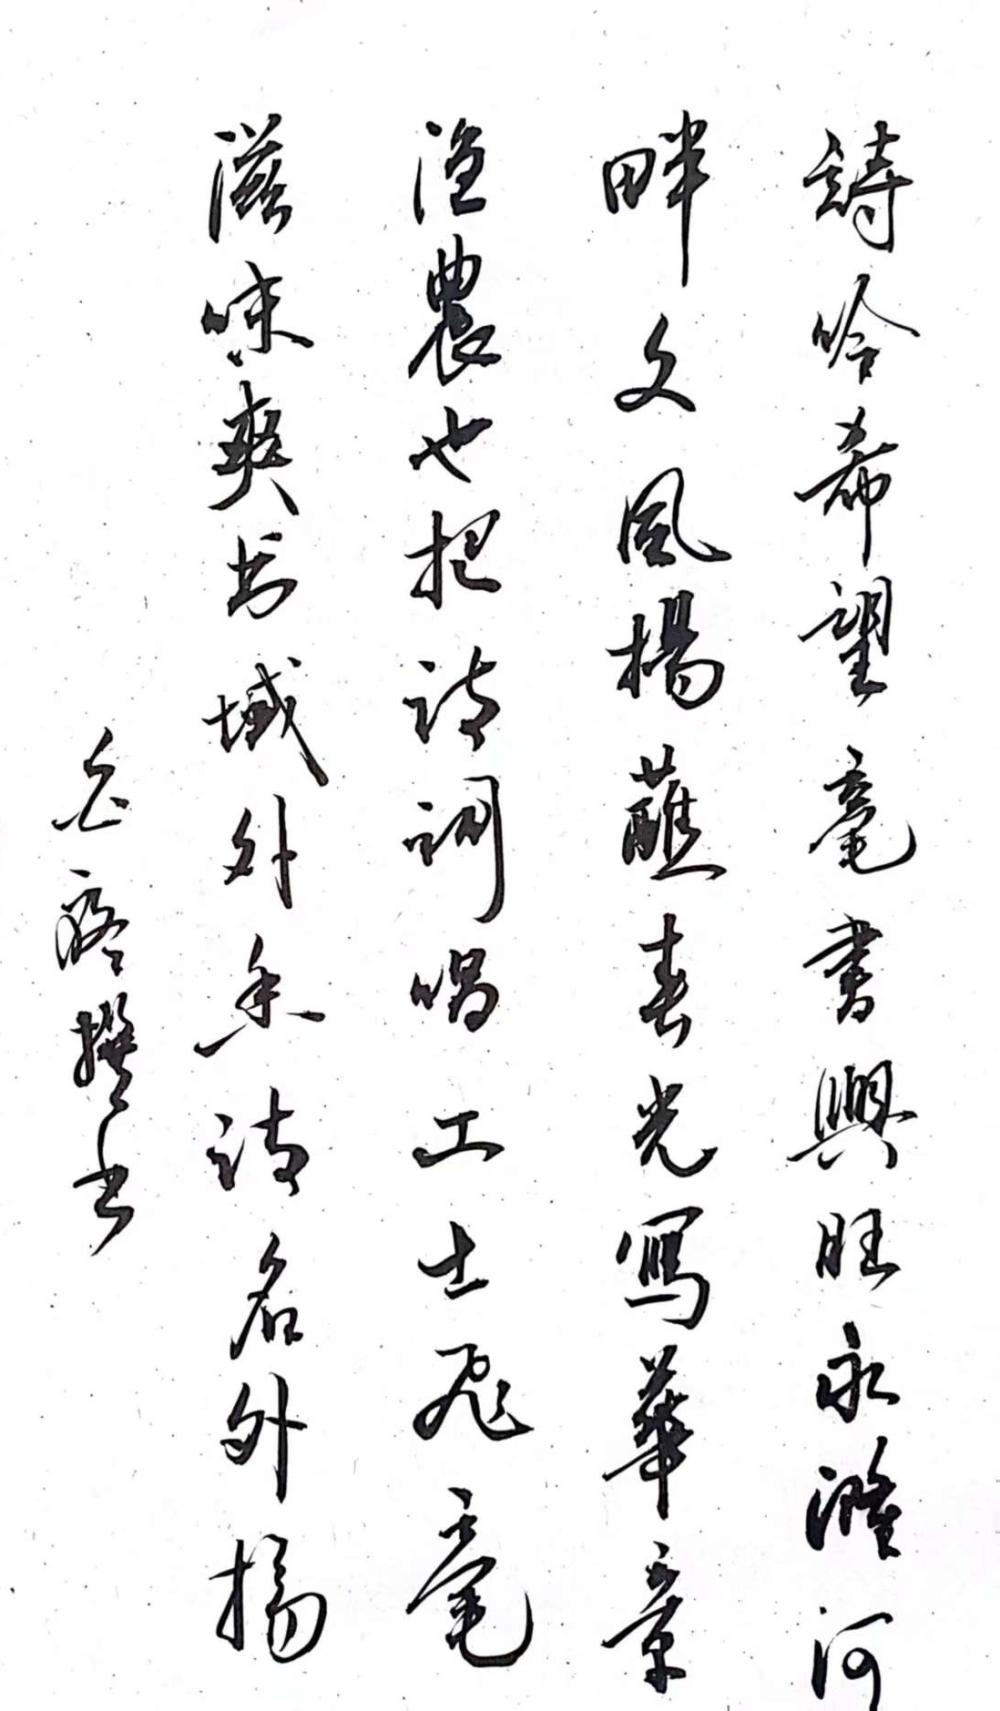 詩吟希望毫書興旺永濰河
畔文風揚蘸春光寫華章
漁農也把诗詞唱工士飛毫
滋味爽书域外香诗名外揚
撰书